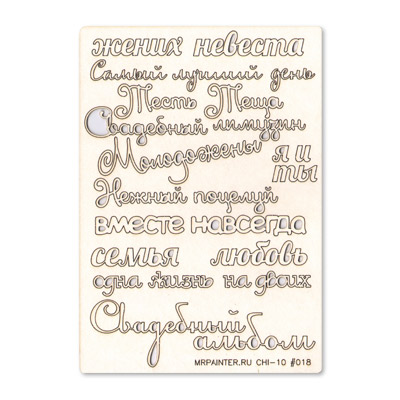 жених невеста
Самый лучший день
Тесть Теща
Свадебный лимузин
Молодожены
я и
ты
Нежный поцелуй
вместе навсегда
семья любовь
одна жизнь на двоих
Свадебный
альбом
MRPAINTER.RU CHI-10 #018